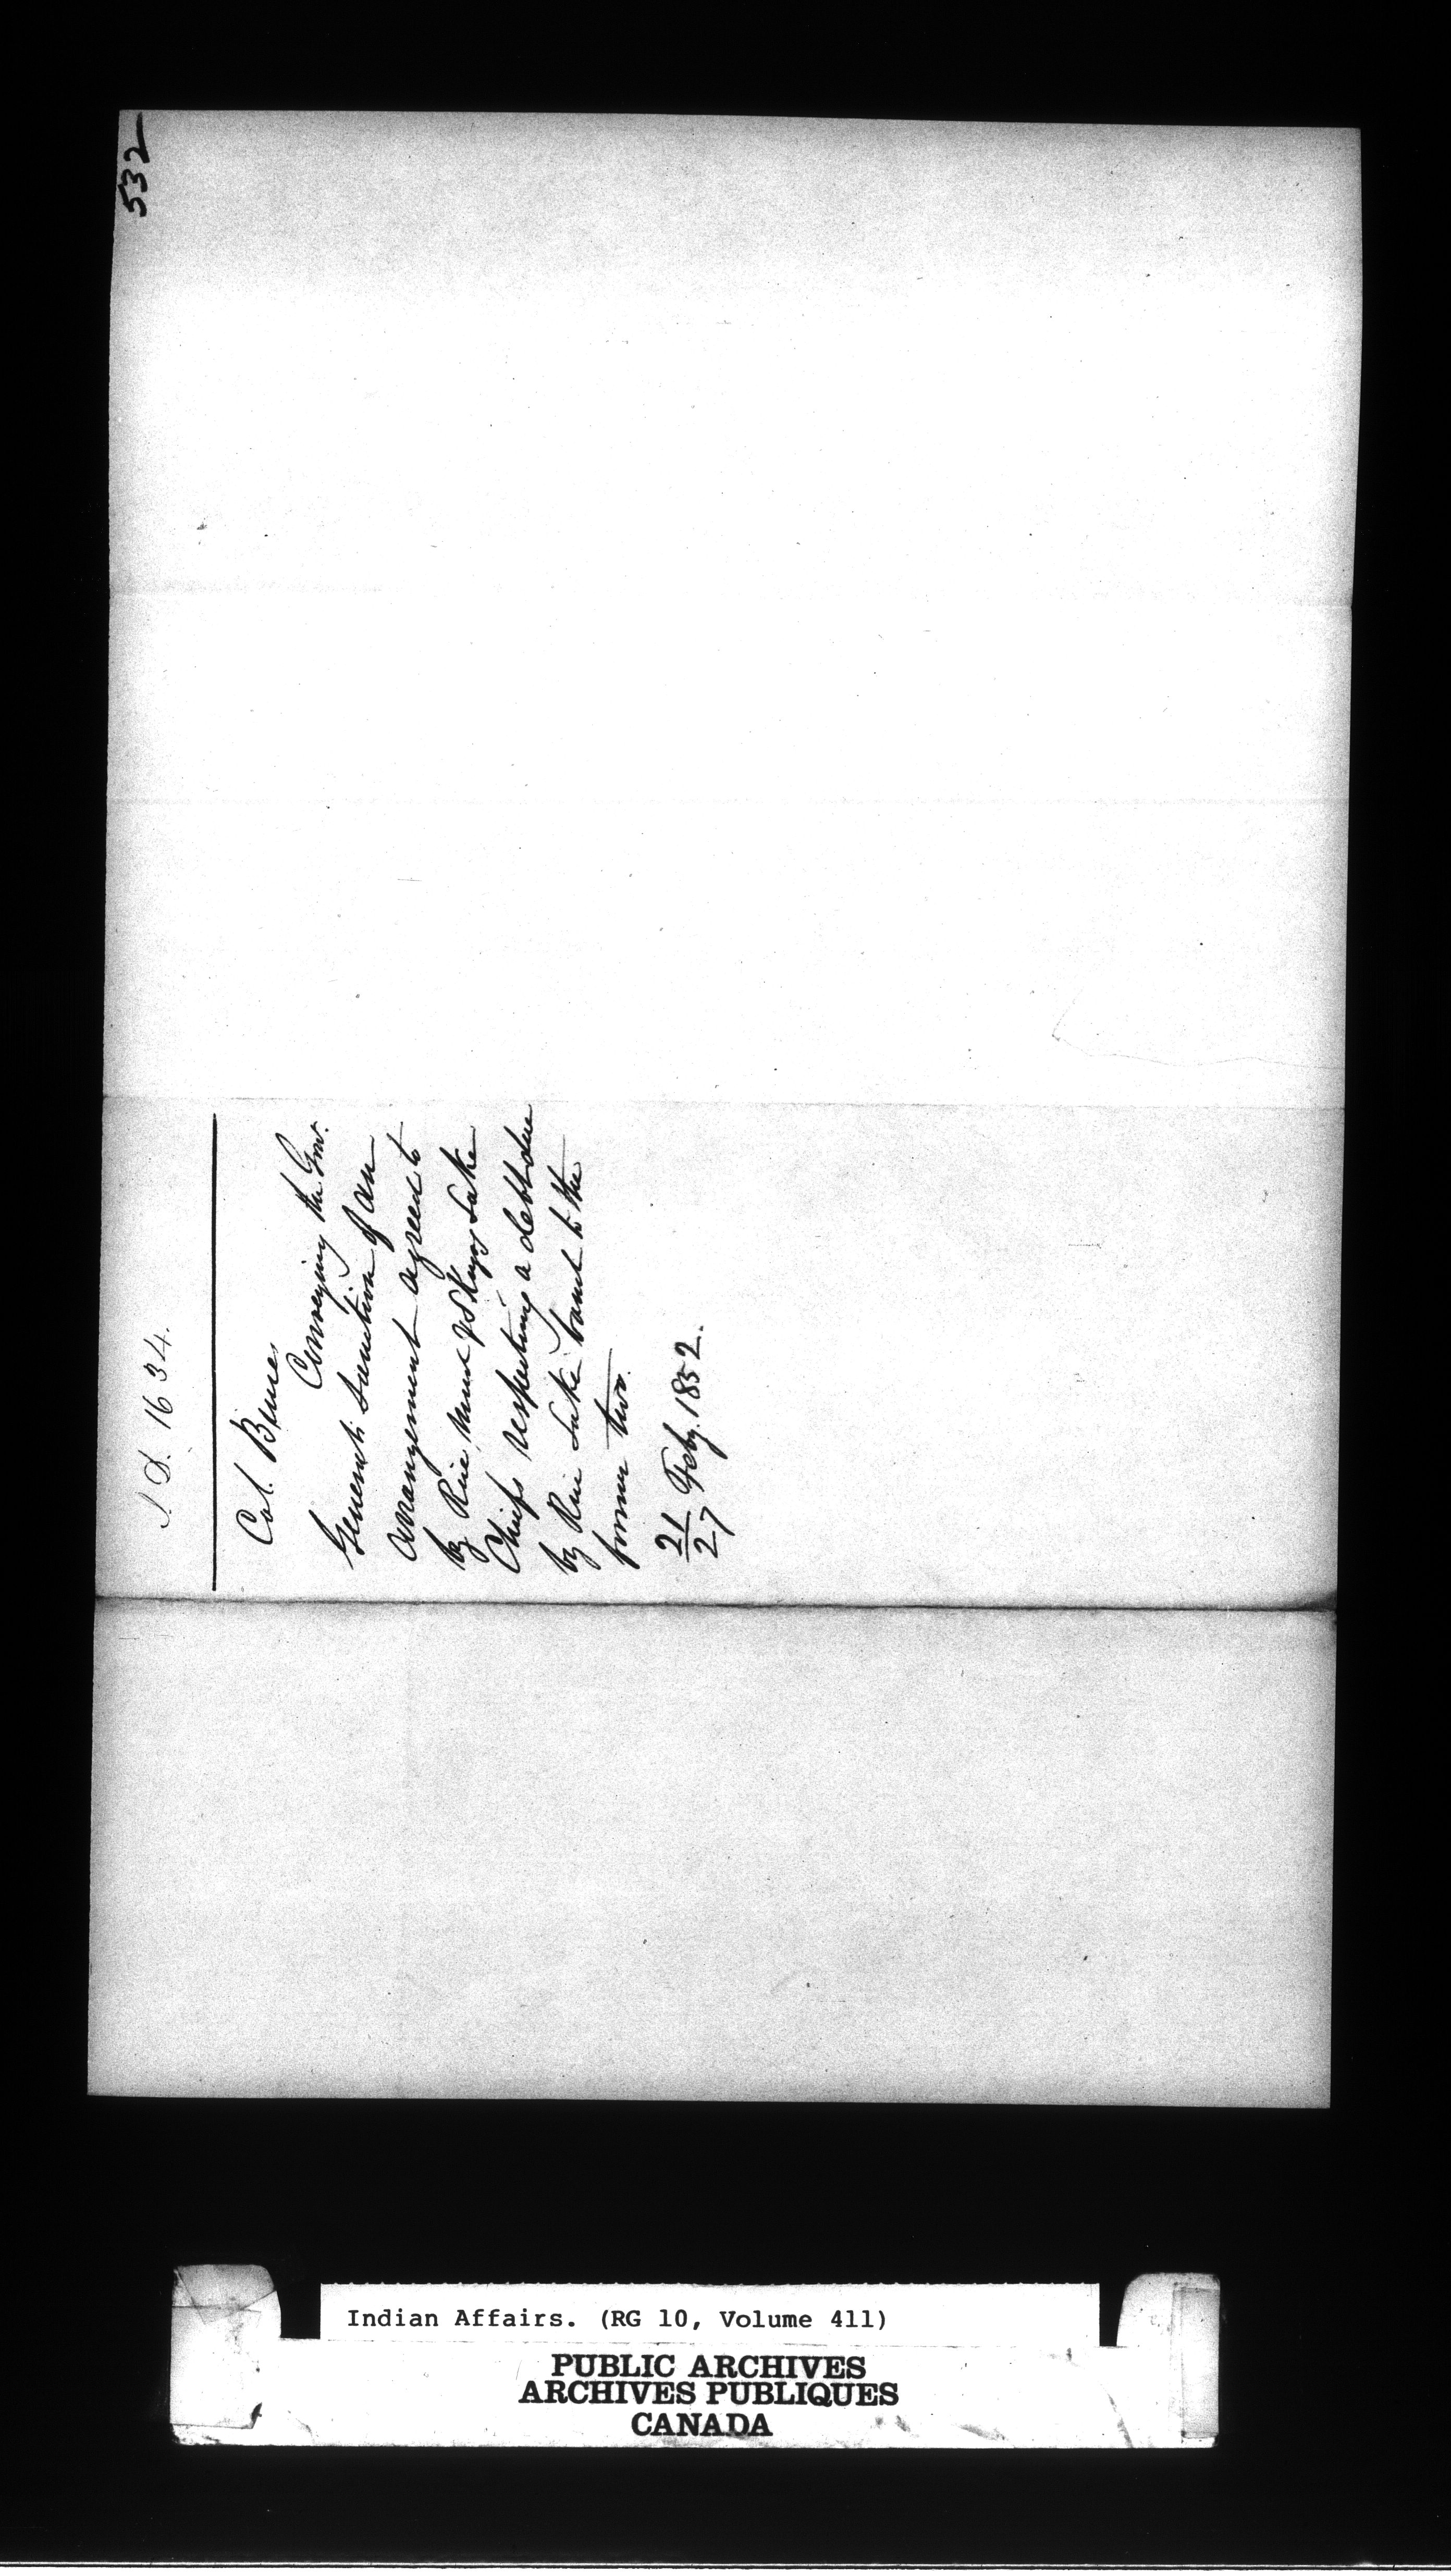 532
I.D. 1634.
Col. Bruce
Conveying the Gov.
General's Sanction of an
arrangement agreed to
by Rice, Mud & Skugog Lake
Chiefs respecting a debt due
by Rice Lake band to the
former two.
21 Feby. 1852.
27
Indian Affairs. (RG 10, Volume 411)
PUBLIC ARCHIVES
ARCHIVES PUBLIQUES
CANADA